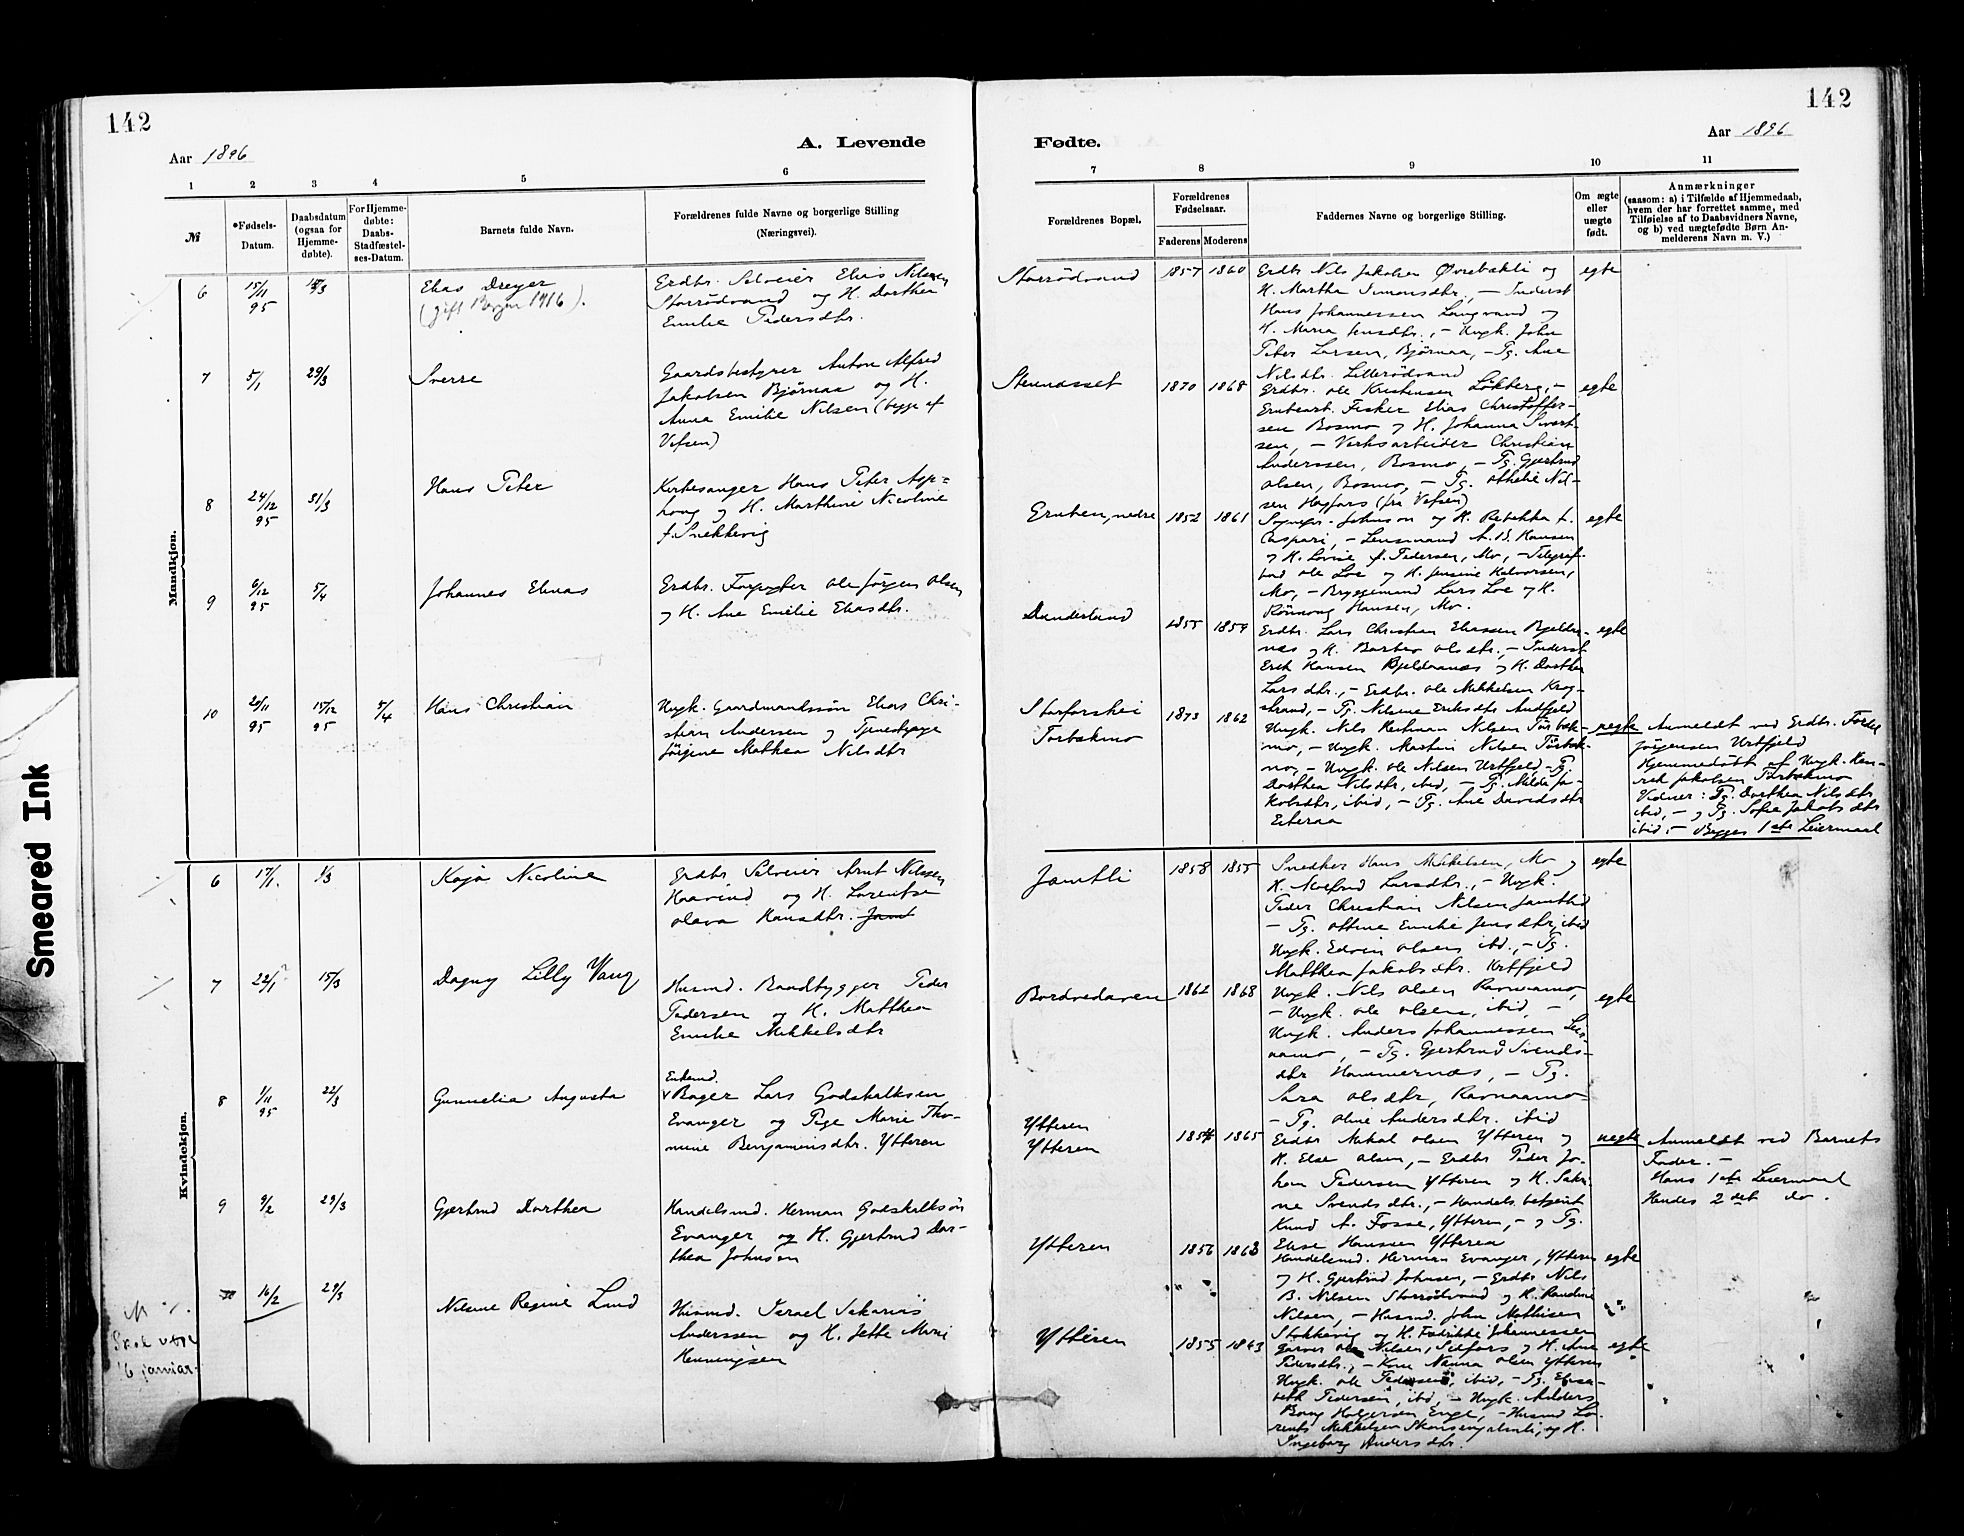 142
142
A. Levende
Fødte.
Aar 1896
Aar 1896
1
2
3
4
5
6
7
8
9
10
11
№
*Fødsels-
Datum.
Daabsdatum
(ogsaa for
Hjemme-
døbte).
For Hjemme-
døbte:
Daabs-
Stadfæstel-
ses-Datum.
Barnets fulde Navn.
Forældrenes fulde Navne og borgerlige Stilling
(Næringsvei).
Forældrenes Bopæl,
Forældrenes
Fødselsaar.
Faderens
Moderens
Faddernes Navne og borgerlige Stilling.
Om ægte
eller
uægte
født.
Anmærkninger
(saasom: a) i Tilfælde af Hjemmedaab,
hvem der har forrettet samme, med
Tilføielse af to Daabsvidners Navne,
og b) ved uægtefødte Børn An-
melderens Navn m. V.)
Mandkjøn.
6
15/11
95
Elias Dreyer
(gift Bergen 1916).
Erdbr. Selveier Elias Nilssen
Storrødvand og H. Dorthea
Emilie Pedersdtr.
Storrødvand
1857 1860
Erdbr Nils Jakobsen Øvrebakli og
H. Martha Simonsdtr., – Inderst
Hans Johannessen Langvand og
H. Maria Jensdtr., – Ungk. John
Peter Larsen, Bjørnaa, – Pg. Ane
Nilsdtr. Lillerødvand
egte
7
5/1
29/3
Sverre
Gaardsbestyrer Anton Alfred
Jakobsen Bjørnaa og H.
Anna Emilie Nilsen (begge af
Vefsen)
Stennasset
1870 1868
Erdbr. Ole Kristensen Løkberg, –
Grubearb. Fisker Elias Christoffer-
sen Bosmo og H. Johanna Sivert-
sen, – Verksarbeider Christian
Anderssen, Bosmo, – Pg. Gjertrud
Olsen, Bosmo, – Pg. Othelie Nil-
sen Hagfors (fra Vefsen)
egte
8
24/12
95
31/3
Hans Peter
Kirkesanger Hans Peter Asp-
houg og H. Marthine Nicoline
f. Snekkevig
Gruben, nedre
1852 1861
Sognepr. Johnson og H. Rebekka f.
Caspari, – Lensmand A. B. Hansen
og H. Lovise f. Pedersen, Mo, – Telegraf-
bud Ole Loe og H. Jensine Halvorsen,
Mo, – Bryggemand Lars Loe og H.
Rønnoug Hansen, Mo.
egte
9
6/12
95
5/4
Johannes Elenas
Erdbr. Forpagter Ole Jørgen Olsen
og H. Ane Emelie Eliasdtr.
Dunderland
1855 1859
Erdbr. Lars Christian Eliassen Bjeldaa-
nes og H. Barbro Olsdtr., – Inderst
Erik Hansen Bjeldaanæs og H. Dorthea
Larsdtr., – Erdbr. Ole Mikkelsen Krog-
strand, – Pg. Nilsine Eriksdtr Andfjeld
egte
10
20/11
95
15/12
95
5/4
Hans Christian
Ungk. Gaardmandssøn Elias Chri-
stian Andersen og Tjenestepige
Jørgine Mathea Nilsdtr
Storforshei
Torbækmo
1873 1862
Ungk. Nils Kristian Nilsen Torbæk-
mo, – Ungk. Martin Nilsen Torbæk-
mo, – Ungk. Ole Nilsen Urtfjeld – Pg.
Dorthea Nilsdtr, ibid, – Pg. Milda Ja-
kobsdtr, ibid, – Pg. Ane Davidsdtr
Eiteraa
uegte
Anmeldt ved Erdbr. Fordel
Jørgensen Urtfjeld
Hjemmedøbt af Ungk. Hen-
rik Jakobsen Torbækmo
Vidner: Pg. Dorthea Nilsdtr
ibid, – og Pg. Sofie Jakobsdtr
ibid. – Begges 1ste Leiermaal
Kvindekjøn.
6
17/1.
1/3
Kaja Nicoline
Erdbr Selveier Arnt Nilssen
Haavind og H. Lorentse
Olava Hansdtr. Jamt
Jamtli
1858 1855
Snedker Hans Mikkelsen, Mo og
H. Molfrid Larsdtr., – Ungk.
Peder Christian Nilsen Jamtlid
– Pg. Ottine Emilie Jensdtr, ibid
Ungk. Edvin Olsen ibid., – Pg.
Matthea Jakobsdtr. Urtfjeld
egte
7
22/1
15/3
Dagny Lilly Vang
Husmd. Baadbygger Peder
Pedersen og H. Matthea
Emilie Mikkelsdtr
Bordvedaven
1862 1868
Ungk. Nils Olsen Ravnaamo,
– Ungk. Ole Olsen, ibid, –
Ungk. Anders Johannessen Leir-
aamo, – Pg. Gjertrud Svends-
dtr Hammernæs, – Pg.
Sara Olsdtr, Ravnaamo
– Pg. Oline Andersdtr. ibid
egte
8
1/11
95
22/3
Gunnelia Augusta
Enkemd.
v Bager Lars Godskalksen
Evanger og Pige Marie Tho-
mine Benjaminsdtr. Ytteren
Ytteren
Ytteren
1854 1865
Erdbr Mikal Olsen Ytteren og
H. Else Olsen, – Erdbr Peder Jo-
han Pedersen Ytteren og H. Sakri-
ne Svendsdtr, – Handelsbetjent
Knud A. Fosse, Ytteren, – og Pg.
Elise Hanssen Ytteren
uegte
Anmeldt ved Barnets
Fader. –
Hans 1ste Leiermaal
Hendes 2det do.
9
9/2
29/3
Gjertrud Dorthea
Handelsmd. Herman Godskalksøn
Evanger og H. Gjertrud Dor-
thea Johnsen
Ytteren
1856 1863
Handelsmd. Herman Evanger, Ytteren
og H. Gjertrud Johnsen, – Erdbr Nils
B. Nilsen Storrødvand og H. Randine
Nilsen, – Husmd. John Mathisen
Stokkevig og H. Fredrikke Johannessen
egte
10
16/2
29/3
Nilsine Regine Lund
Husmd. Israel Sakarias
Anderssen og H. Jette Marie
Henningsen
Ytteren
1855 1843
Garver Ole Nilsen, Selfors og H. Ane
Pedersdtr., – Kone Nanna Olsen Ytteren
Ungk. Ole Pedersen, ibid, – Pg. Elisa-
beth Pedersen, ibid, – Ungk. Anders
Borg Holgersen Enge, – Husmd Lo-
rents Mikkelsen og H.
Ingeborg Andersdtr.
egte
16 januar
Smeared Ink